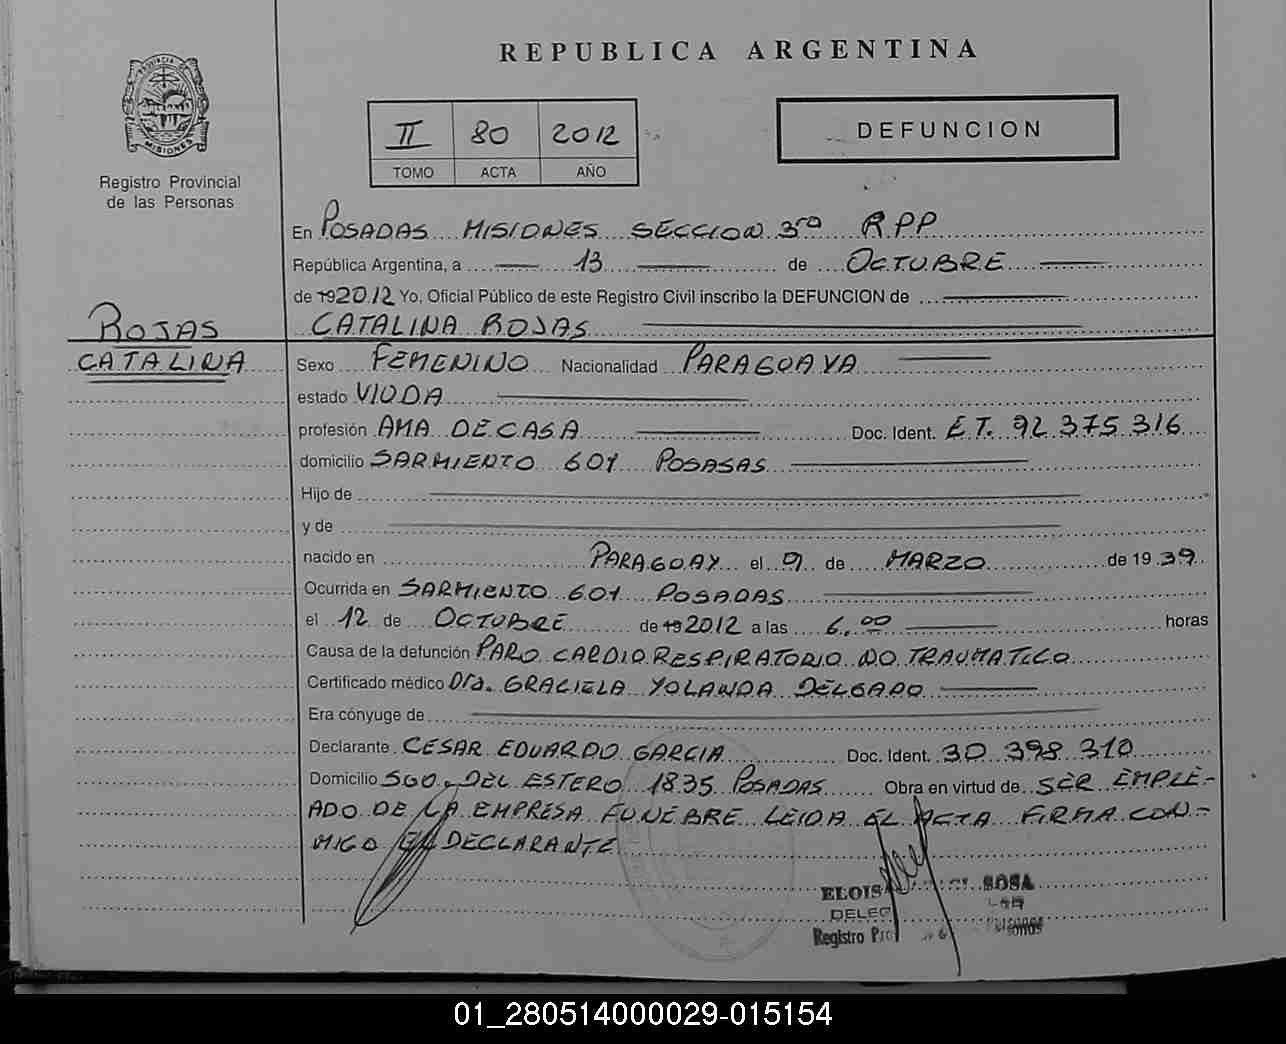 REPUBLICA ARGENTINA
PROVINCIA DE
MISIONES
Registro Provincial
de las Personas
II 80 2012
TOMO ACTA AÑO
DEFUNCION
En POSADAS MISIONES SECCION 3ra RPP
República Argentina, a 13 de OCTUBRE
de 192012 Yo, Oficial Público de este Registro Civil inscribo la DEFUNCION de
ROJAS
CATALINA
CATALINA ROJAS
Sexo FEMENINO Nacionalidad PARAGUAYA
estado VIUDA
profesión AMA DE CASA Doc. Ident. E.T. 92 375 316
domicilio SARMIENTO 601 POSASAS
Hijo de
y de
nacido en PARAGUAY el 9 de MARZO de 19 39
Ocurrida en SARMIENTO 601 POSADAS
el 12 de OCTUBRE de 192012 a las 6,00 horas
Causa de la defunción PARO CARDIO RESPIRATORIO NO TRAUMATICO
Certificado médico Dra. GRACIELA YOLANDA DELGADO
Era cónyuge de
Declarante CESAR EDUARDO GARCIA Doc. Ident. 30 398 310
Domicilio SGO. DEL ESTERO 1835 POSADAS Obra en virtud de SER EMPLE-
ADO DE LA EMPRESA FUNEBRE LEIDA EL ACTA FIRMA CON-
MIGO EL DECLARANTE
SOSA
Registro
01_280514000029-015154